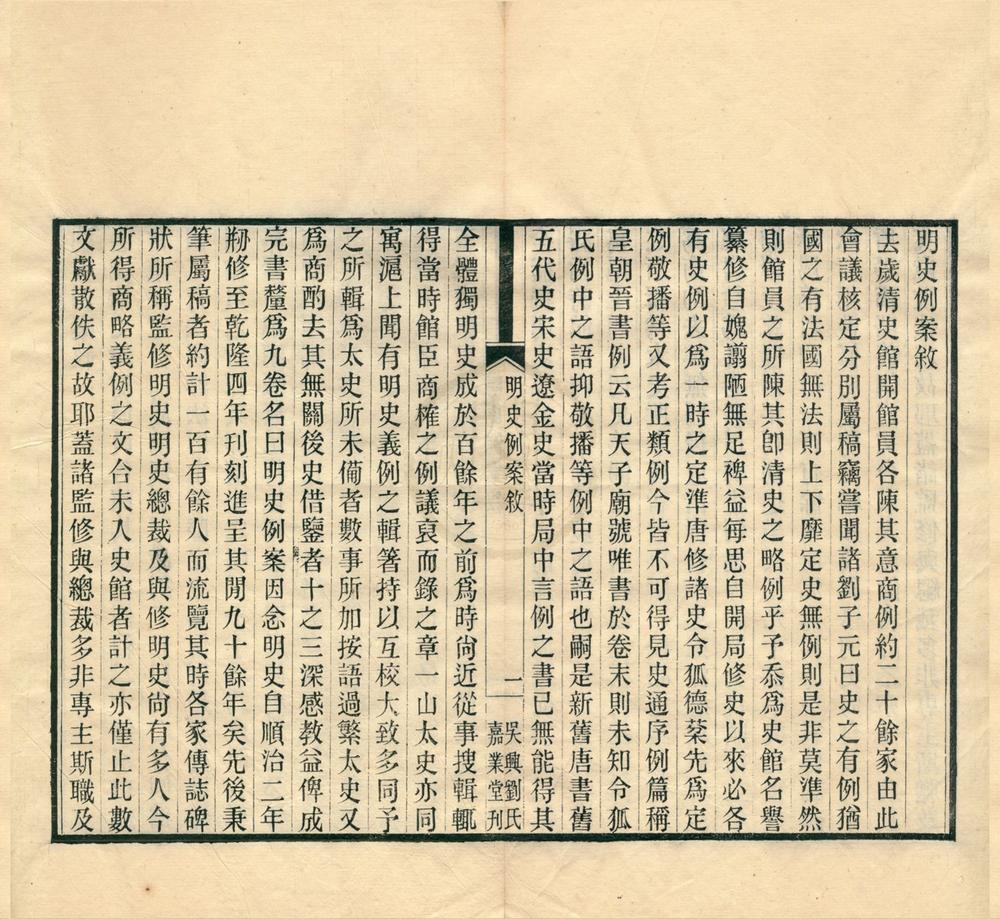 明史例案敘
去歲清史館開館員各陳其意商例約二十餘家由此
會議核定分別屬稿竊嘗聞諸劉子元曰史之有例猶
國之有法國無法則上下靡定史無例則是非莫準然
則館員之所陳其卽清史之略例乎予忝爲史館名譽
纂修自媿譾陋無足裨益每思自開局修史以來必各
有史例以爲一時之定準唐修諸史令狐德棻先爲定
例敬播等又考正類例今皆不可得見史通序例篇稱
皇朝晉書例云凡天子廟號唯書於卷末則未知令狐
氏例中之語抑敬播等例中之語也嗣是新舊唐書舊
五代史宋史遼金史當時局中言例之書已無能得其
明史例案敘
一
吳興劉氏
嘉業堂刊
全體獨明史成於百餘年之前爲時尙近從事搜輯輒
得當時館臣商榷之例議裒而錄之章一山太史亦同
寓滬上聞有明史義例之輯箸持以互校大致多同予
之所輯爲太史所未備者數事所加按語過繁太史又
爲商酌去其無關後史借鑒者十之三深感教益俾成
完書釐爲九卷名曰明史例案因念明史自順治二年
刱修至乾隆四年刊刻進呈其閒九十餘年矣先後秉
筆屬稿者約計一百有餘人而流覽其時各家傳誌碑
狀所稱監修明史明史總裁及與修明史尙有多人今
所得商略義例之文合未入史館者計之亦僅止此數
文獻散佚之故耶蓋諸監修與總裁多非專主斯職及